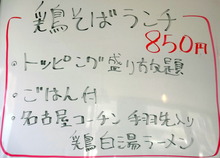 鶏そばランチ
850円
・トッピング盛り放題
・ごはん付
・名古屋コーチン手羽先入り
鶏白湯ラーメン